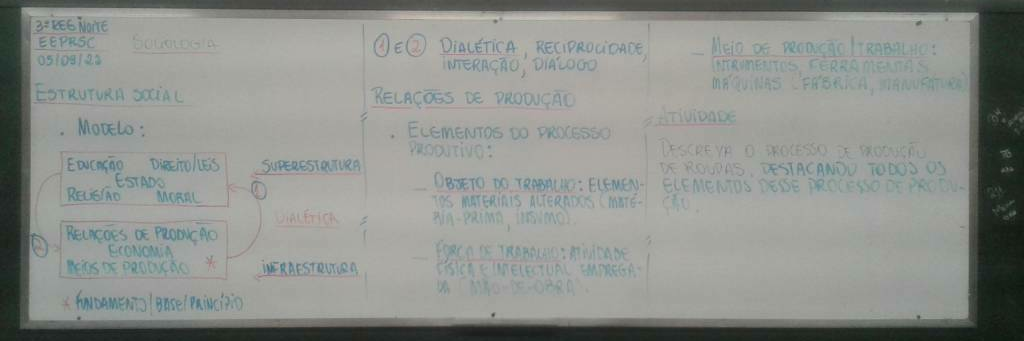 3º REG NOITE
EEPRSC SOCIOLOGIA
05/09/22
ESTRUTURA SOCIAL
. MODELO:
EDUCAÇÃO DIREITO/LEIS
ESTADO
RELIGIÃO MORAL
SUPERESTRUTURA
1
DIALÉTICA
2
RELAÇÕES DE PRODUÇÃO
ECONOMIA
MEIOS DE PRODUÇÃO *
INFRAESTRUTURA
* FUNDAMENTO/BASE/PRINCÍPIO
1 E 2 DIALÉTICA, RECIPROCIDADE,
INTERAÇÃO, DIÁLOGO
RELAÇÕES DE PRODUÇÃO
. ELEMENTOS DO PROCESSO
PRODUTIVO:
— OBJETO DO TRABALHO: ELEMEN-
TOS MATERIAIS ALTERADOS (MATÉ-
RIA-PRIMA, INSUMO).
— FORÇA DE TRABALHO: ATIVIDADE
FÍSICA E INTELECTUAL EMPREGA-
DA (MÃO-DE-OBRA).
— MEIO DE PRODUÇÃO/TRABALHO:
INTRUMENTOS, FERRAMENTAS,
MÁQUINAS (FÁBRICA, MANUFATURA)
ATIVIDADE
DESCREVA O PROCESSO DE PRODUÇÃO
DE ROUPAS, DESTACANDO TODOS OS
ELEMENTOS DESSE PROCESSO DE PRODU-
ÇÃO.